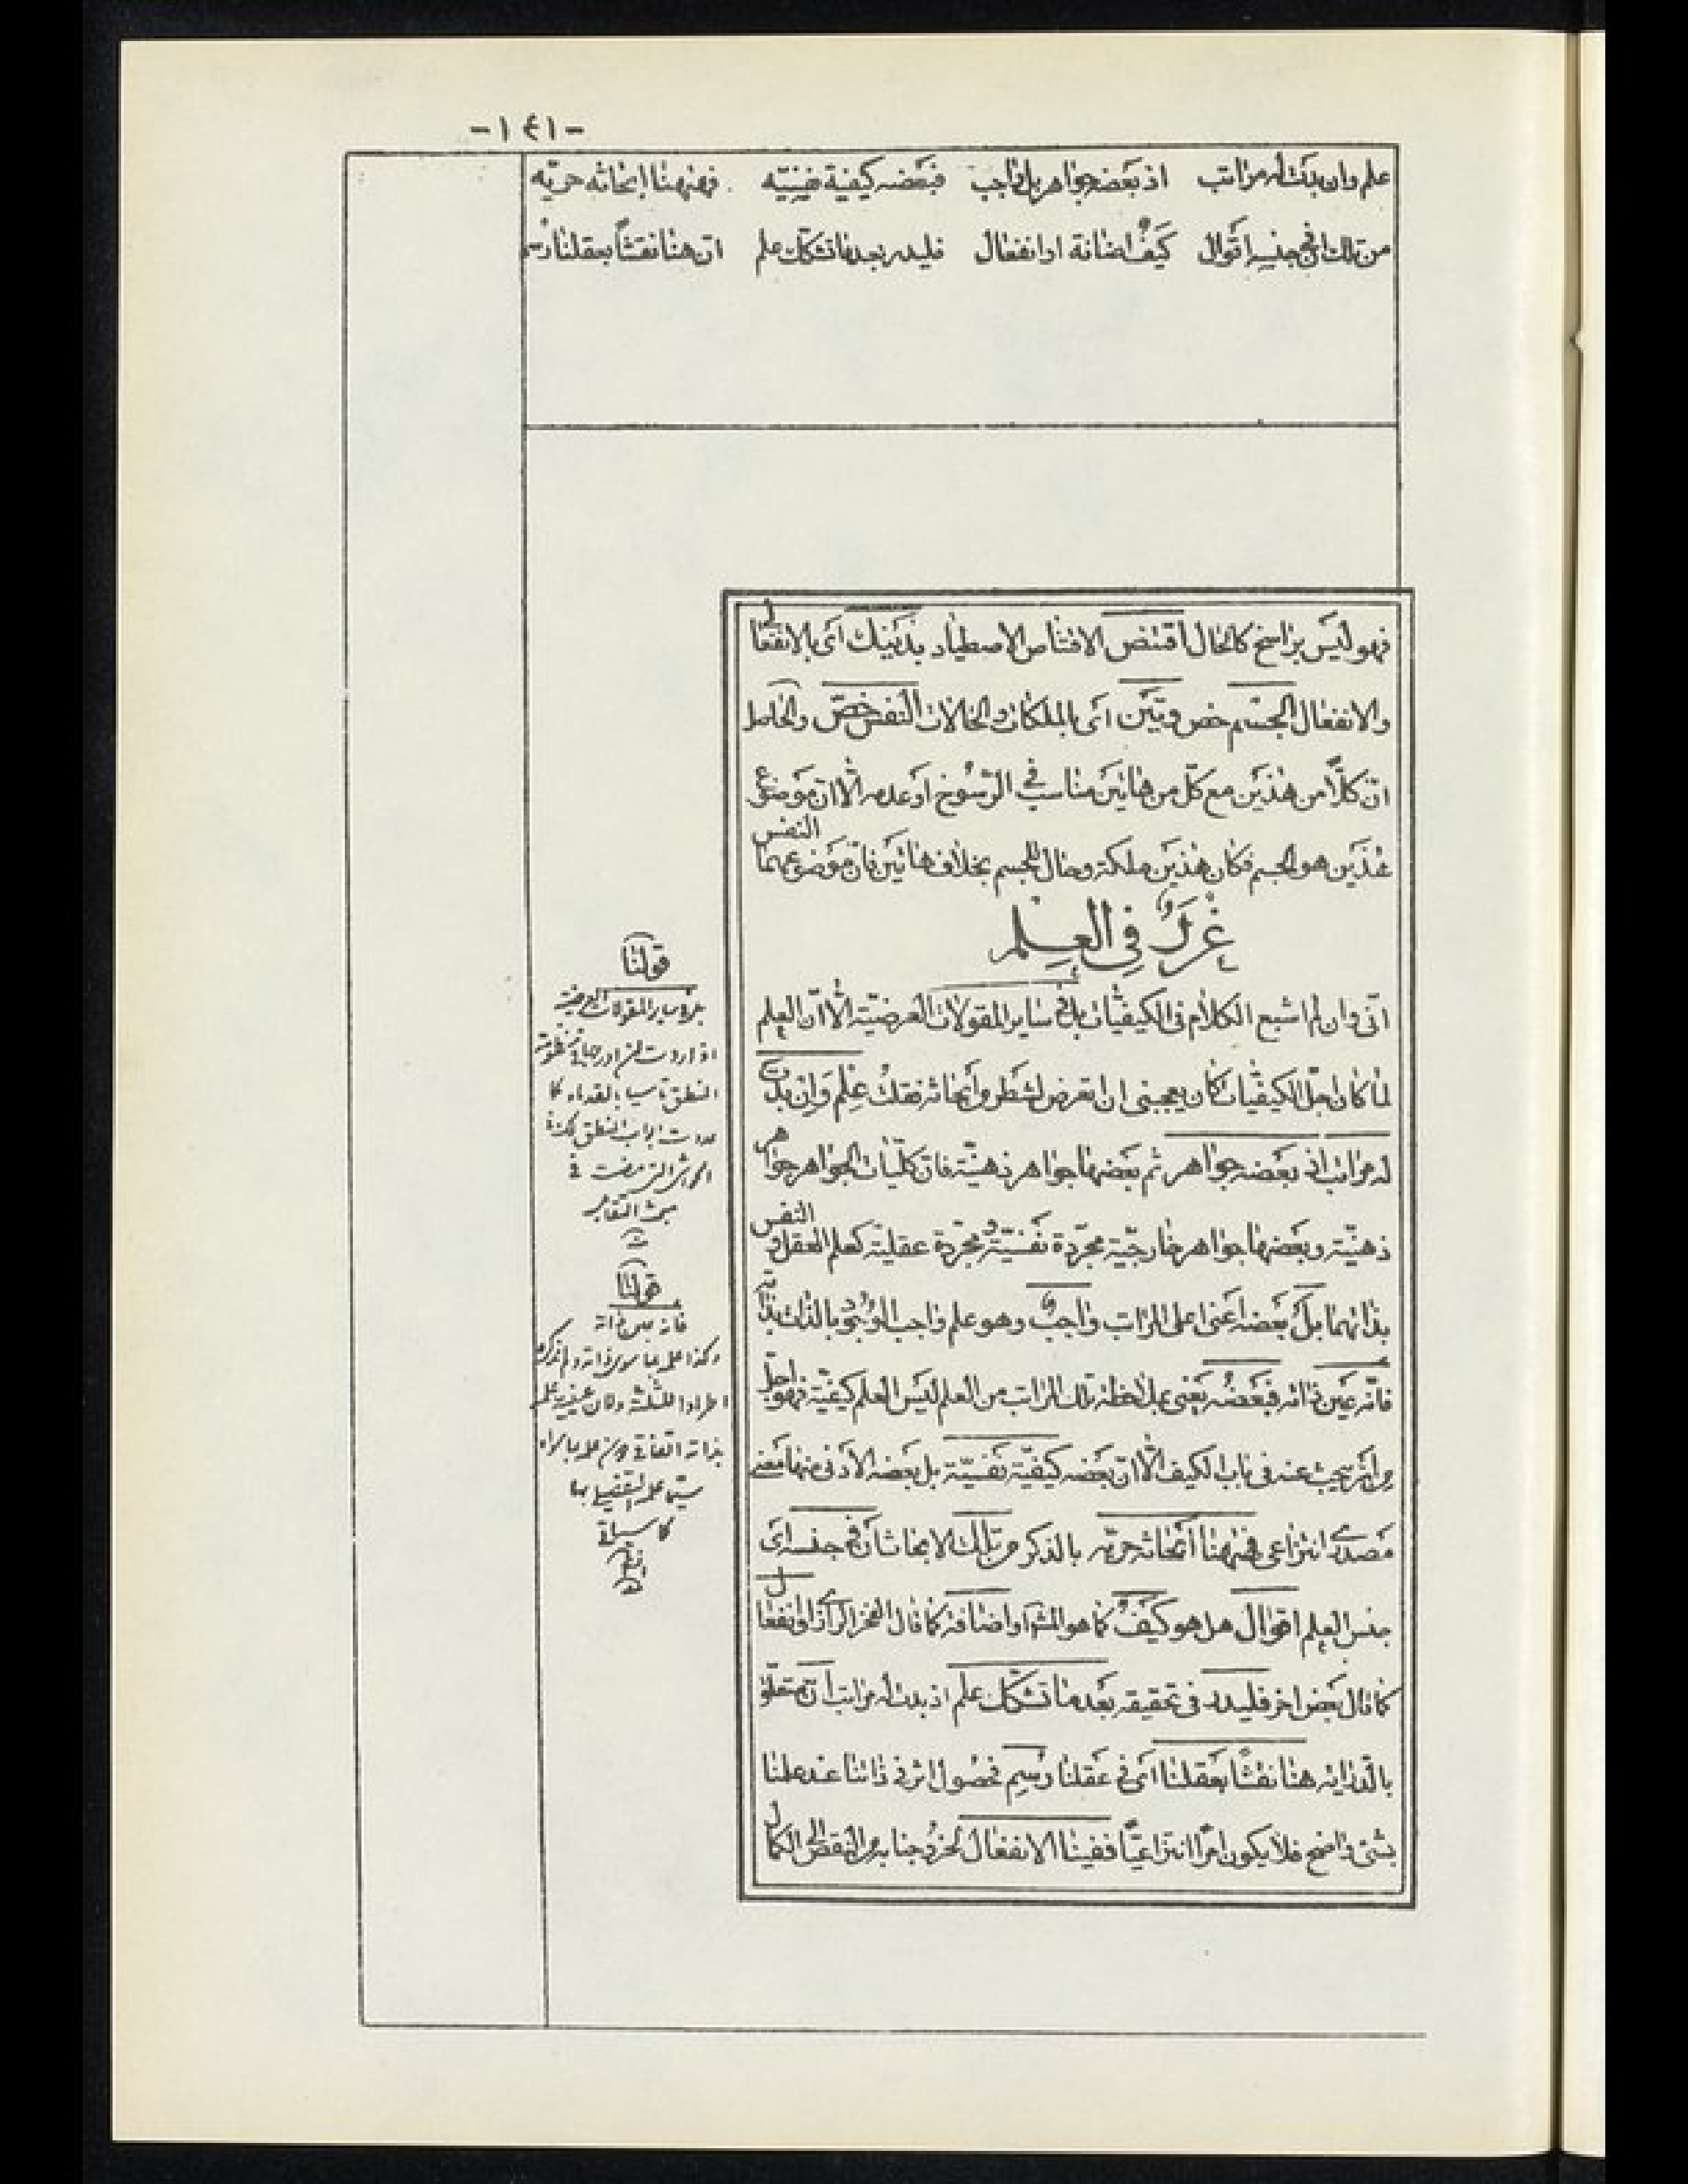 -١٤١-
علم وان بدت له مراتب اذ بعضه جواهر بل واجب فبعضه كيفية نفسيّه فههنا ابحاثه حريّه
من تلك ان فى جنسه اقوال كيفٌ اضافة او انفعال فليدر بعد ما تشكك علم انّ هنا نقشاً بعقلنا رسم
فهو ليس براسخ كالحال اقتنص الاقتناص الاصطياد بذينك اى بالانفعالى
والانفعال الجسم خص وتين اى بالملكات والحالات النفس خصّ والحاصل
انّ كلّاً من هذين مع كلّ من هاتين مناسب فى الرّسوخ او عدمه الّا انّ موضوع
هذين هو الجسم فكان هذين ملكة وحال للجسم بخلاف هاتين فانّ موضوعهما النفس
غررٌ فى العلم
انّى وان لم اشبع الكلام فى الكيفيّات بل فى ساير المقولات العرضيّة الّا انّ العلم
لما كان اجلّ الكيفيّات كان يعجبنى ان اتعرض لشطر من ابحاثه فقلت علم وان بدت
له مراتب اذ بعضه جواهر ثم بعضها جواهر ذهنيّة فان كلّيات الجواهر جواهر
ذهنيّة وبعضها جواهر خارجيّة مجرّدة نفسيّة ومجرّدة عقلية كعلم العقل والنفس
بذاتهما بل بعضه اعنى اعلى المراتب واجبٌ وهو علم واجب الوجود بالذات بذاته
فانّه عين ذاته فبعضه يعنى بملاحظة تلك المراتب من العلم ليس العلم كيفيّة فهو اجلّ
من انّ يبحث عنه فى باب الكيف الّا انّ بعضه كيفيّة نفسيّة بل بعضه الادنى منها معنى
مصدرى انتزاعى فههنا ابحاثه حريّه بالذكر من تلك الابحاث ان فى جنسه اى
جنس العلم اقوال هل هو كيفٌ كما هو المش او اضافة كما قال الفخر الرازى او انفعال
كما قال بعض اخر فليدر فى تحقيقه بعد ما تشكك علم اذ بدت له مراتب انّ متعلق
بالدراية هنا نقشاً بعقلنا اى فى عقلنا رسم فحصول اثر فى ذاتنا عند علمنا
بشىء واضح فلا يكون امراً انتزاعيّاً ففينا الانفعال لخروجنا به من النقص الى الكمال
قولنا
بل فى ساير المقولات العرضية
اذا اردت
المنطق تاسيا بالقدماء كما
المنطق
الحواشى التى مضت فى
مبحث
قولنا
فانه عين ذاته
وكذا علمه بما سوى ذاته
بذاته اتفاقى دون علمه بما سواه
سيّما علمه التفصيلى بها
كما سياتى